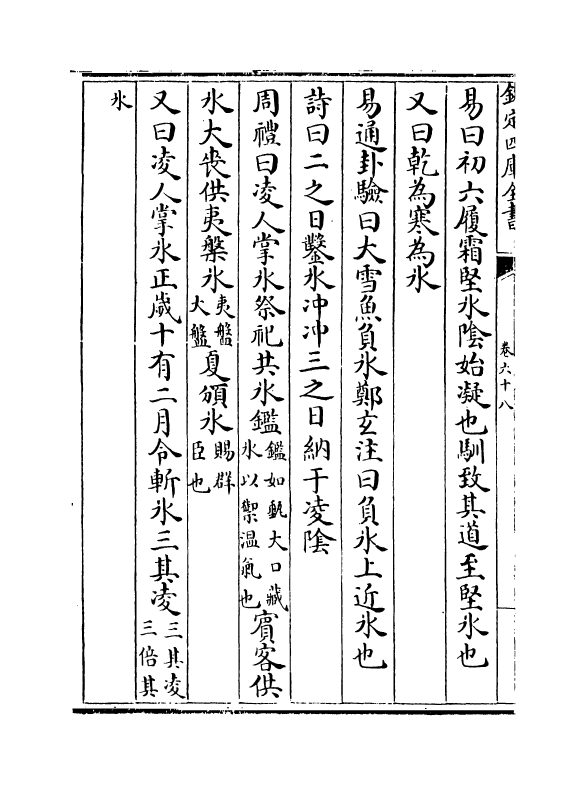 欽定四庫全書
卷六十八
易曰初六履霜堅氷陰始凝也馴致其道至堅氷也
又曰乾為寒為氷
易通卦驗曰大雪魚負氷鄭玄注曰負氷上近氷也
詩曰二之日鑿氷冲冲三之日納于凌隂
周禮曰凌人掌氷祭祀共氷鑑鑑如甀大口藏氷以禦温氣也賓客供
氷大喪供夷槃氷夷盤大盤夏頒氷賜群臣也
又曰凌人掌氷正歲十有二月令斬氷三其凌三其凌三倍其
氷